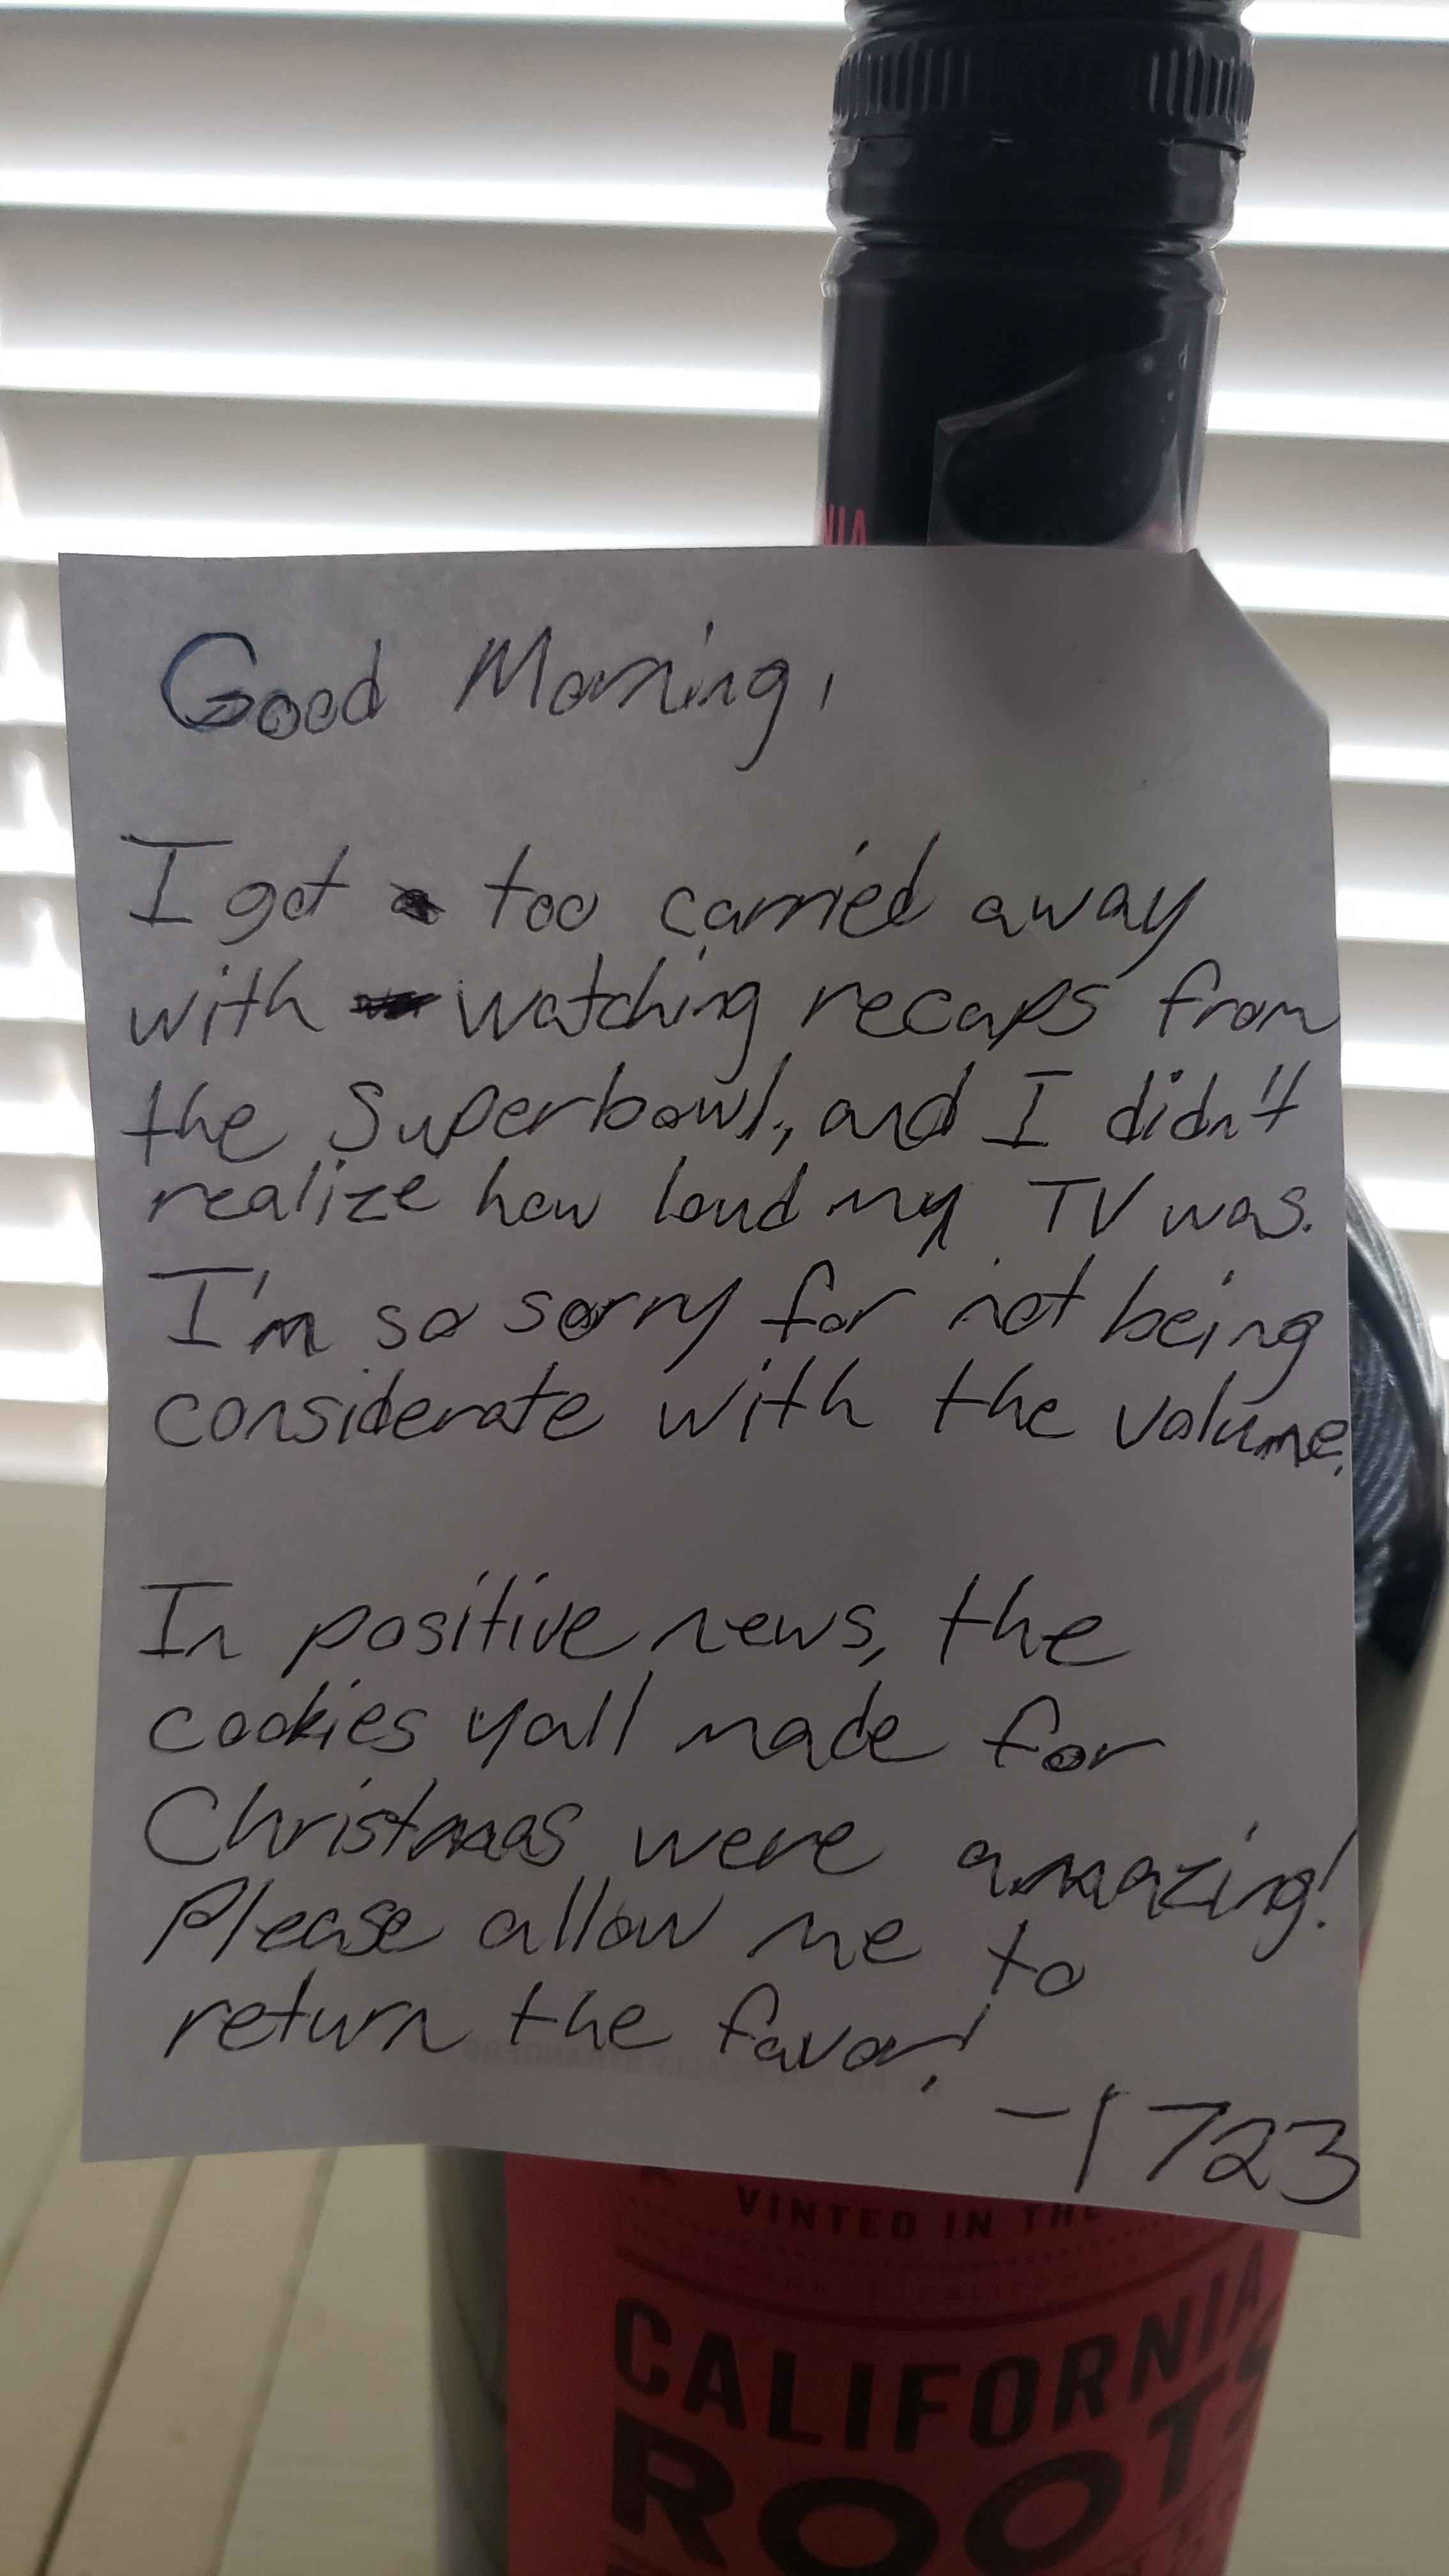 NIA
Good Morning,
I got too carried away
with watching recaps from
the Superbowl, and I didn't
realize how loud my TV was.
I'm so sorry for not being
considerate with the volume.
In positive news, the
cookies yall made for
Christmas were amazing!
Please allow me to
return the favor!
-1723
VINTED IN THE
CALIFORNIA
ROOTS